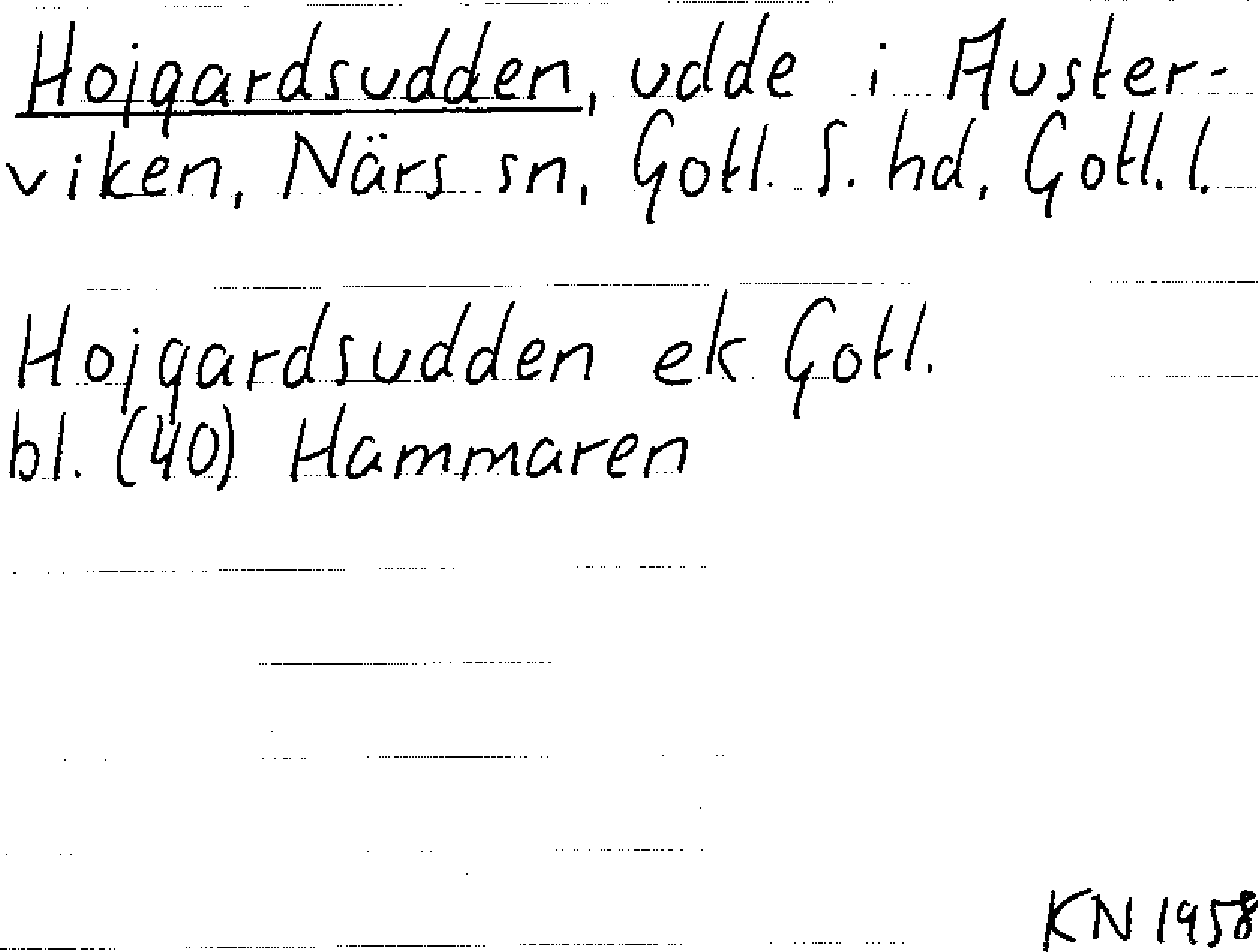 Hojgardsudden, udde i Auster-
viken, Närs sn, Gotl. S. hd, Gotl. l.
Hojgardsudden ek Gotl.
bl. (40) Hammaren
KN 1958